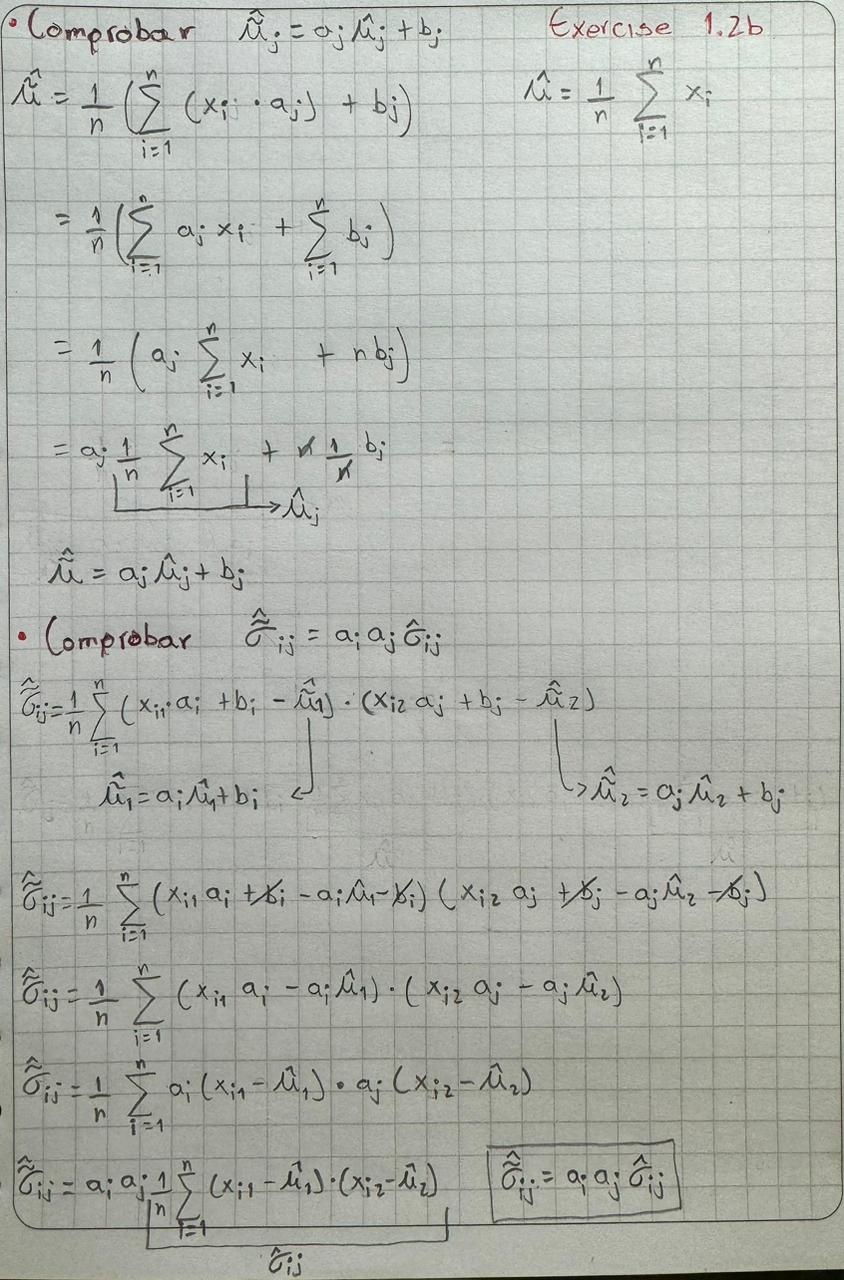 • Comprobar μ̃̂_j = a_j μ̂_j + b_j
Exercise 1.2b
μ̃̂ = 1/n (∑_{i=1}^{n} (x_{ij} · a_j) + b_j)
μ̂ = 1/n ∑_{i=1}^{n} x_i
= 1/n (∑_{i=1}^{n} a_j x_i + ∑_{i=1}^{n} b_j)
= 1/n (a_j ∑_{i=1}^{n} x_i + n b_j)
= a_j 1/n ∑_{i=1}^{n} x_i + n 1/n b_j
→ μ̂_j
μ̃̂ = a_j μ̂_j + b_j
• Comprobar σ̃̂_{ij} = a_i a_j σ̂_{ij}
σ̃̂_{ij} = 1/n ∑_{i=1}^{n} (x_{i1} · a_i + b_i - μ̃̂_1) · (x_{i2} a_j + b_j - μ̃̂_2)
μ̃̂_1 = a_i μ̂_1 + b_i ←
→ μ̃̂_2 = a_j μ̂_2 + b_j
σ̃̂_{ij} = 1/n ∑_{i=1}^{n} (x_{i1} a_i + b_i - a_i μ̂_1 - b_i) (x_{i2} a_j + b_j - a_j μ̂_2 - b_j)
σ̃̂_{ij} = 1/n ∑_{i=1}^{n} (x_{i1} a_i - a_i μ̂_1) · (x_{i2} a_j - a_j μ̂_2)
σ̃̂_{ij} = 1/n ∑_{i=1}^{n} a_i (x_{i1} - μ̂_1) · a_j (x_{i2} - μ̂_2)
σ̃̂_{ij} = a_i a_j 1/n ∑_{i=1}^{n} (x_{i1} - μ̂_1) · (x_{i2} - μ̂_2)
σ̃̂_{ij} = a_i a_j σ̂_{ij}
σ̂_{ij}